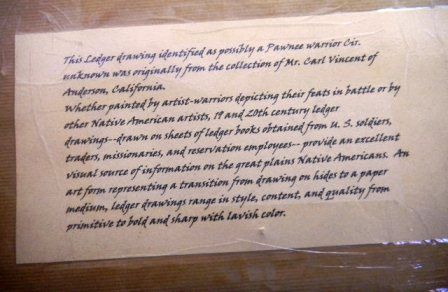 This Ledger drawing identified as possibly a Pawnee warrior Cir.
unknown was originally from the collection of Mr. Carl Vincent of
Anderson, California.
Whether painted by artist-warriors depicting their feats in battle or by
other Native American artists, 19 and 20th century ledger
drawings--drawn on sheets of ledger books obtained from U. S. soldiers,
traders, missionaries, and reservation employees-- provide an excellent
visual source of information on the great plains Native Americans. An
art form representing a transition from drawing on hides to a paper
medium, ledger drawings range in style, content, and quality from
primitive to bold and sharp with lavish color.